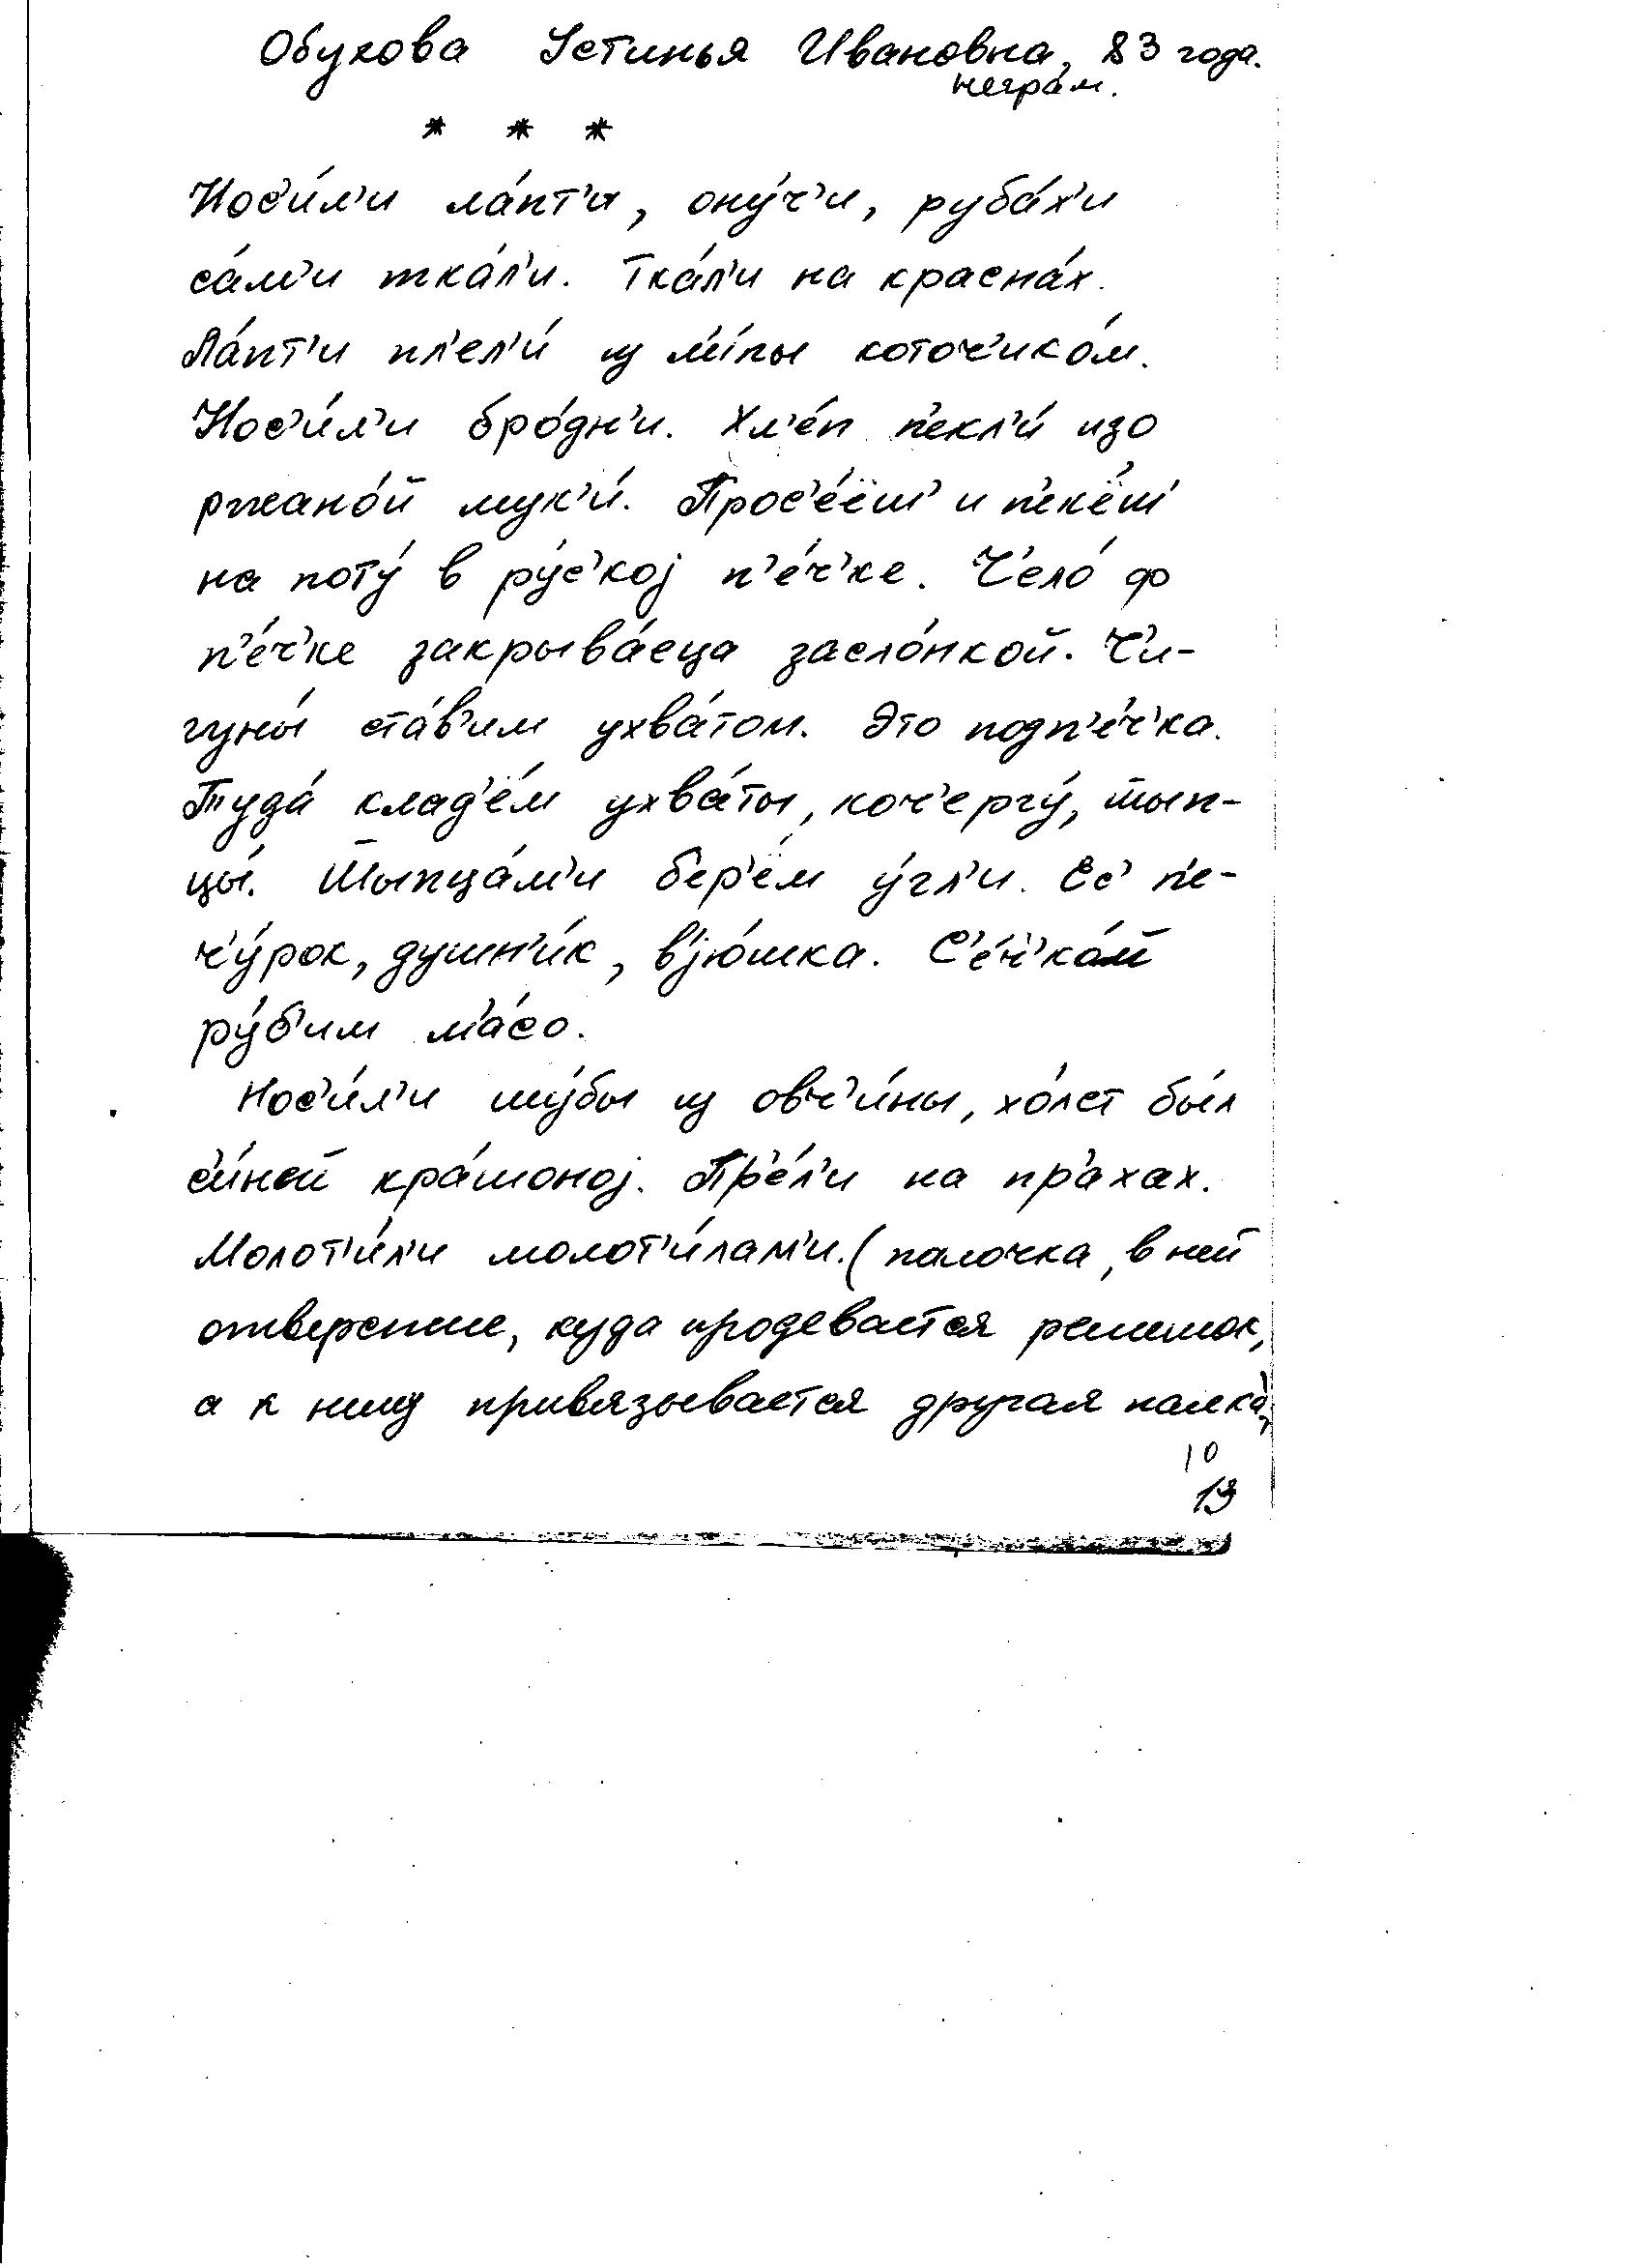 Обухова Устинья Ивановна, 83 года.
неграм.
* * *
Нос'и́л'и ла́пт'и, ону́ч'и, руба́х'и
са́м'и тка́л'и. Тка́л'и на красна́х.
Ла́пт'и пл'ел'и́ из л'и́пы коточ'ико́м.
Нос'и́л'и бро́дн'и. Хл'е́п п'екл'и́ изо
ржано́й мук'и́. Прос'е́ёш' и п'екёш'
на поту́ в ру́с'кој п'е́ч'ке. Ч'ело́ ф
п'е́ч'ке закрыва́еца засло́нкой. Ч'и-
гуны́ ста́в'им ухва́том. Это подп'е́ч'ка.
Туда́ клад'ём ухва́ты, коч'ергу́, шып-
цы́. Шыпца́м'и бер'ём у́гл'и. Ес' п'е-
ч'у́рок, душн'и́к, в'јю́шка. С'е́ч'ко́й
ру́б'им м'а́со.
Нос'и́л'и шу́бы из овч'и́ны, хо́лст бы́л
с'и́ней кра́шоној. Пр'е́л'и на пр'а́хах.
Молот'и́л'и молот'и́лам'и. (палочка, в ней
отверстие, куда продевается ремешок,
а к нему привязывается другая палка)
10
13